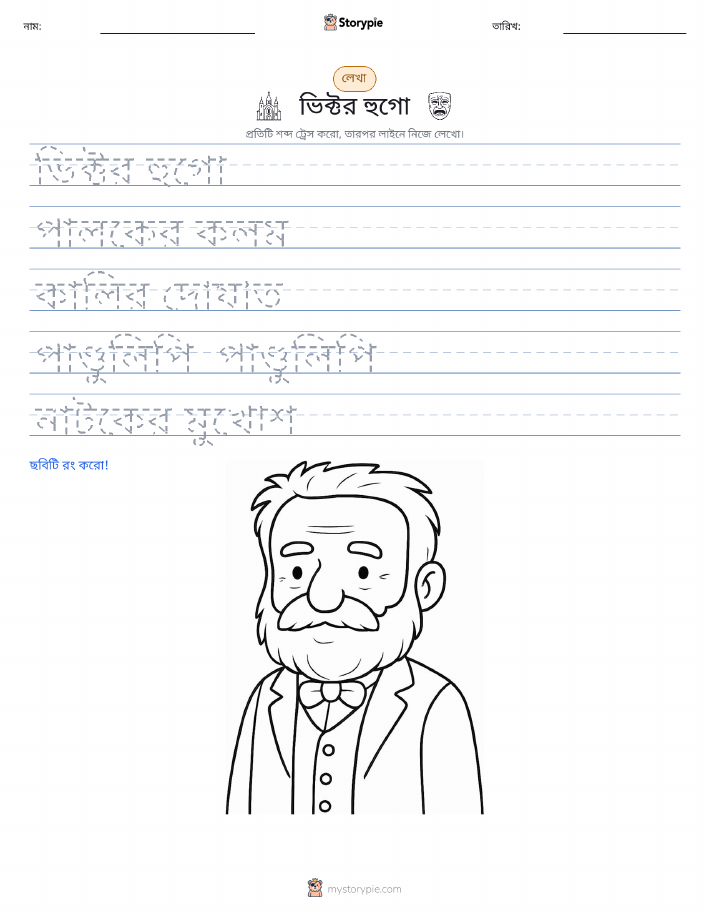 নাম:
Storypie
তারিখ:
লেখা
ভিক্টর হুগো
প্রতিটি শব্দ ট্রেস করো, তারপর লাইনে নিজে লেখো।
ভিক্টর হুগো
পালকের কলম
কালির দোয়াত
পাণ্ডুলিপি পাণ্ডুলিপি
নাটকের মুখোশ
ছবিটি রং করো!
mystorypie.com